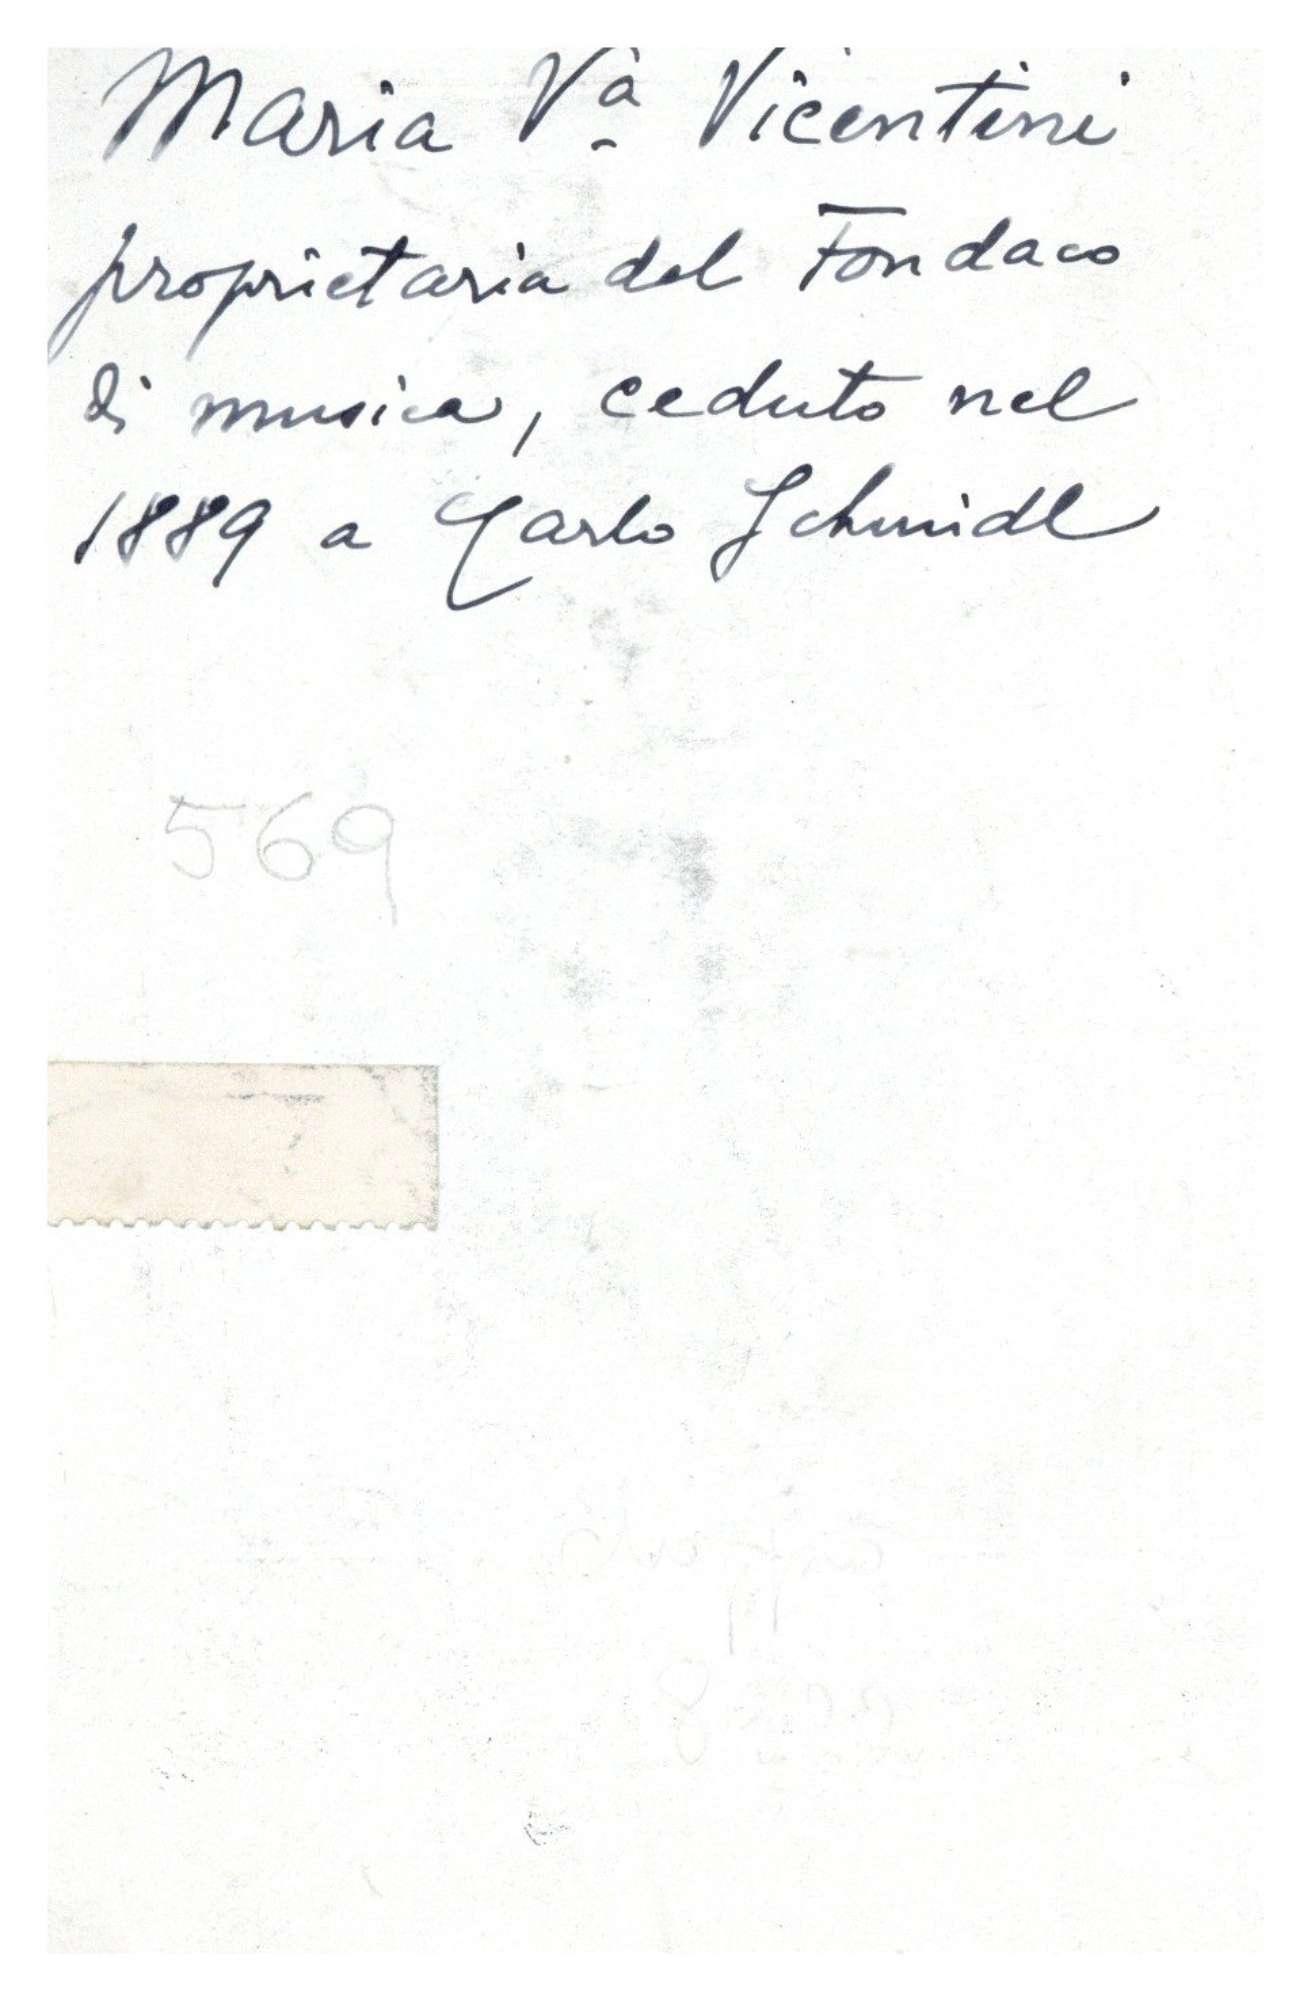 Maria Vª Vicentini
proprietaria del Fondaco
di musica, ceduto nel
1889 a Carlo Schmidl
569